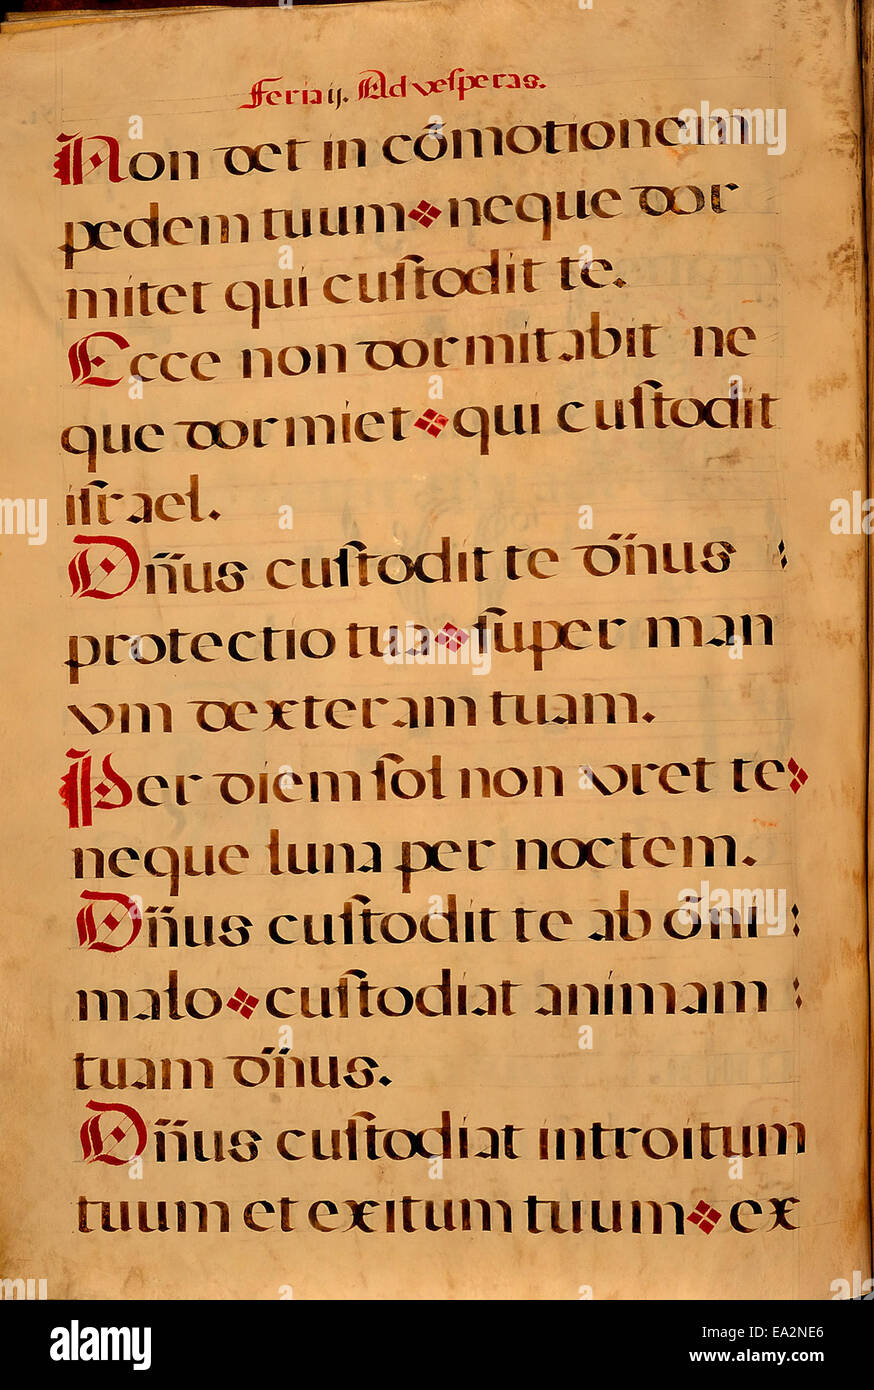 Feria ij. Ad vesperas.
Non det in cōmotionem
pedem tuum neque dor
mitet qui cuſtodit te.
Ecce non dormitabit ne
que dormiet qui cuſtodit
iſrael.
Dn̄us cuſtodit te dn̄us :
protectio tua ſuper man
vm dexteram tuam.
Per diem ſol non vret te
neque luna per noctem.
Dn̄us cuſtodit te ab om̄ni :
malo cuſtodiat animam :
tuam dn̄us.
Dn̄us cuſtodiat introitum
tuum et exitum tuum ex
alamy
Image ID: EA2NE6
www.alamy.com